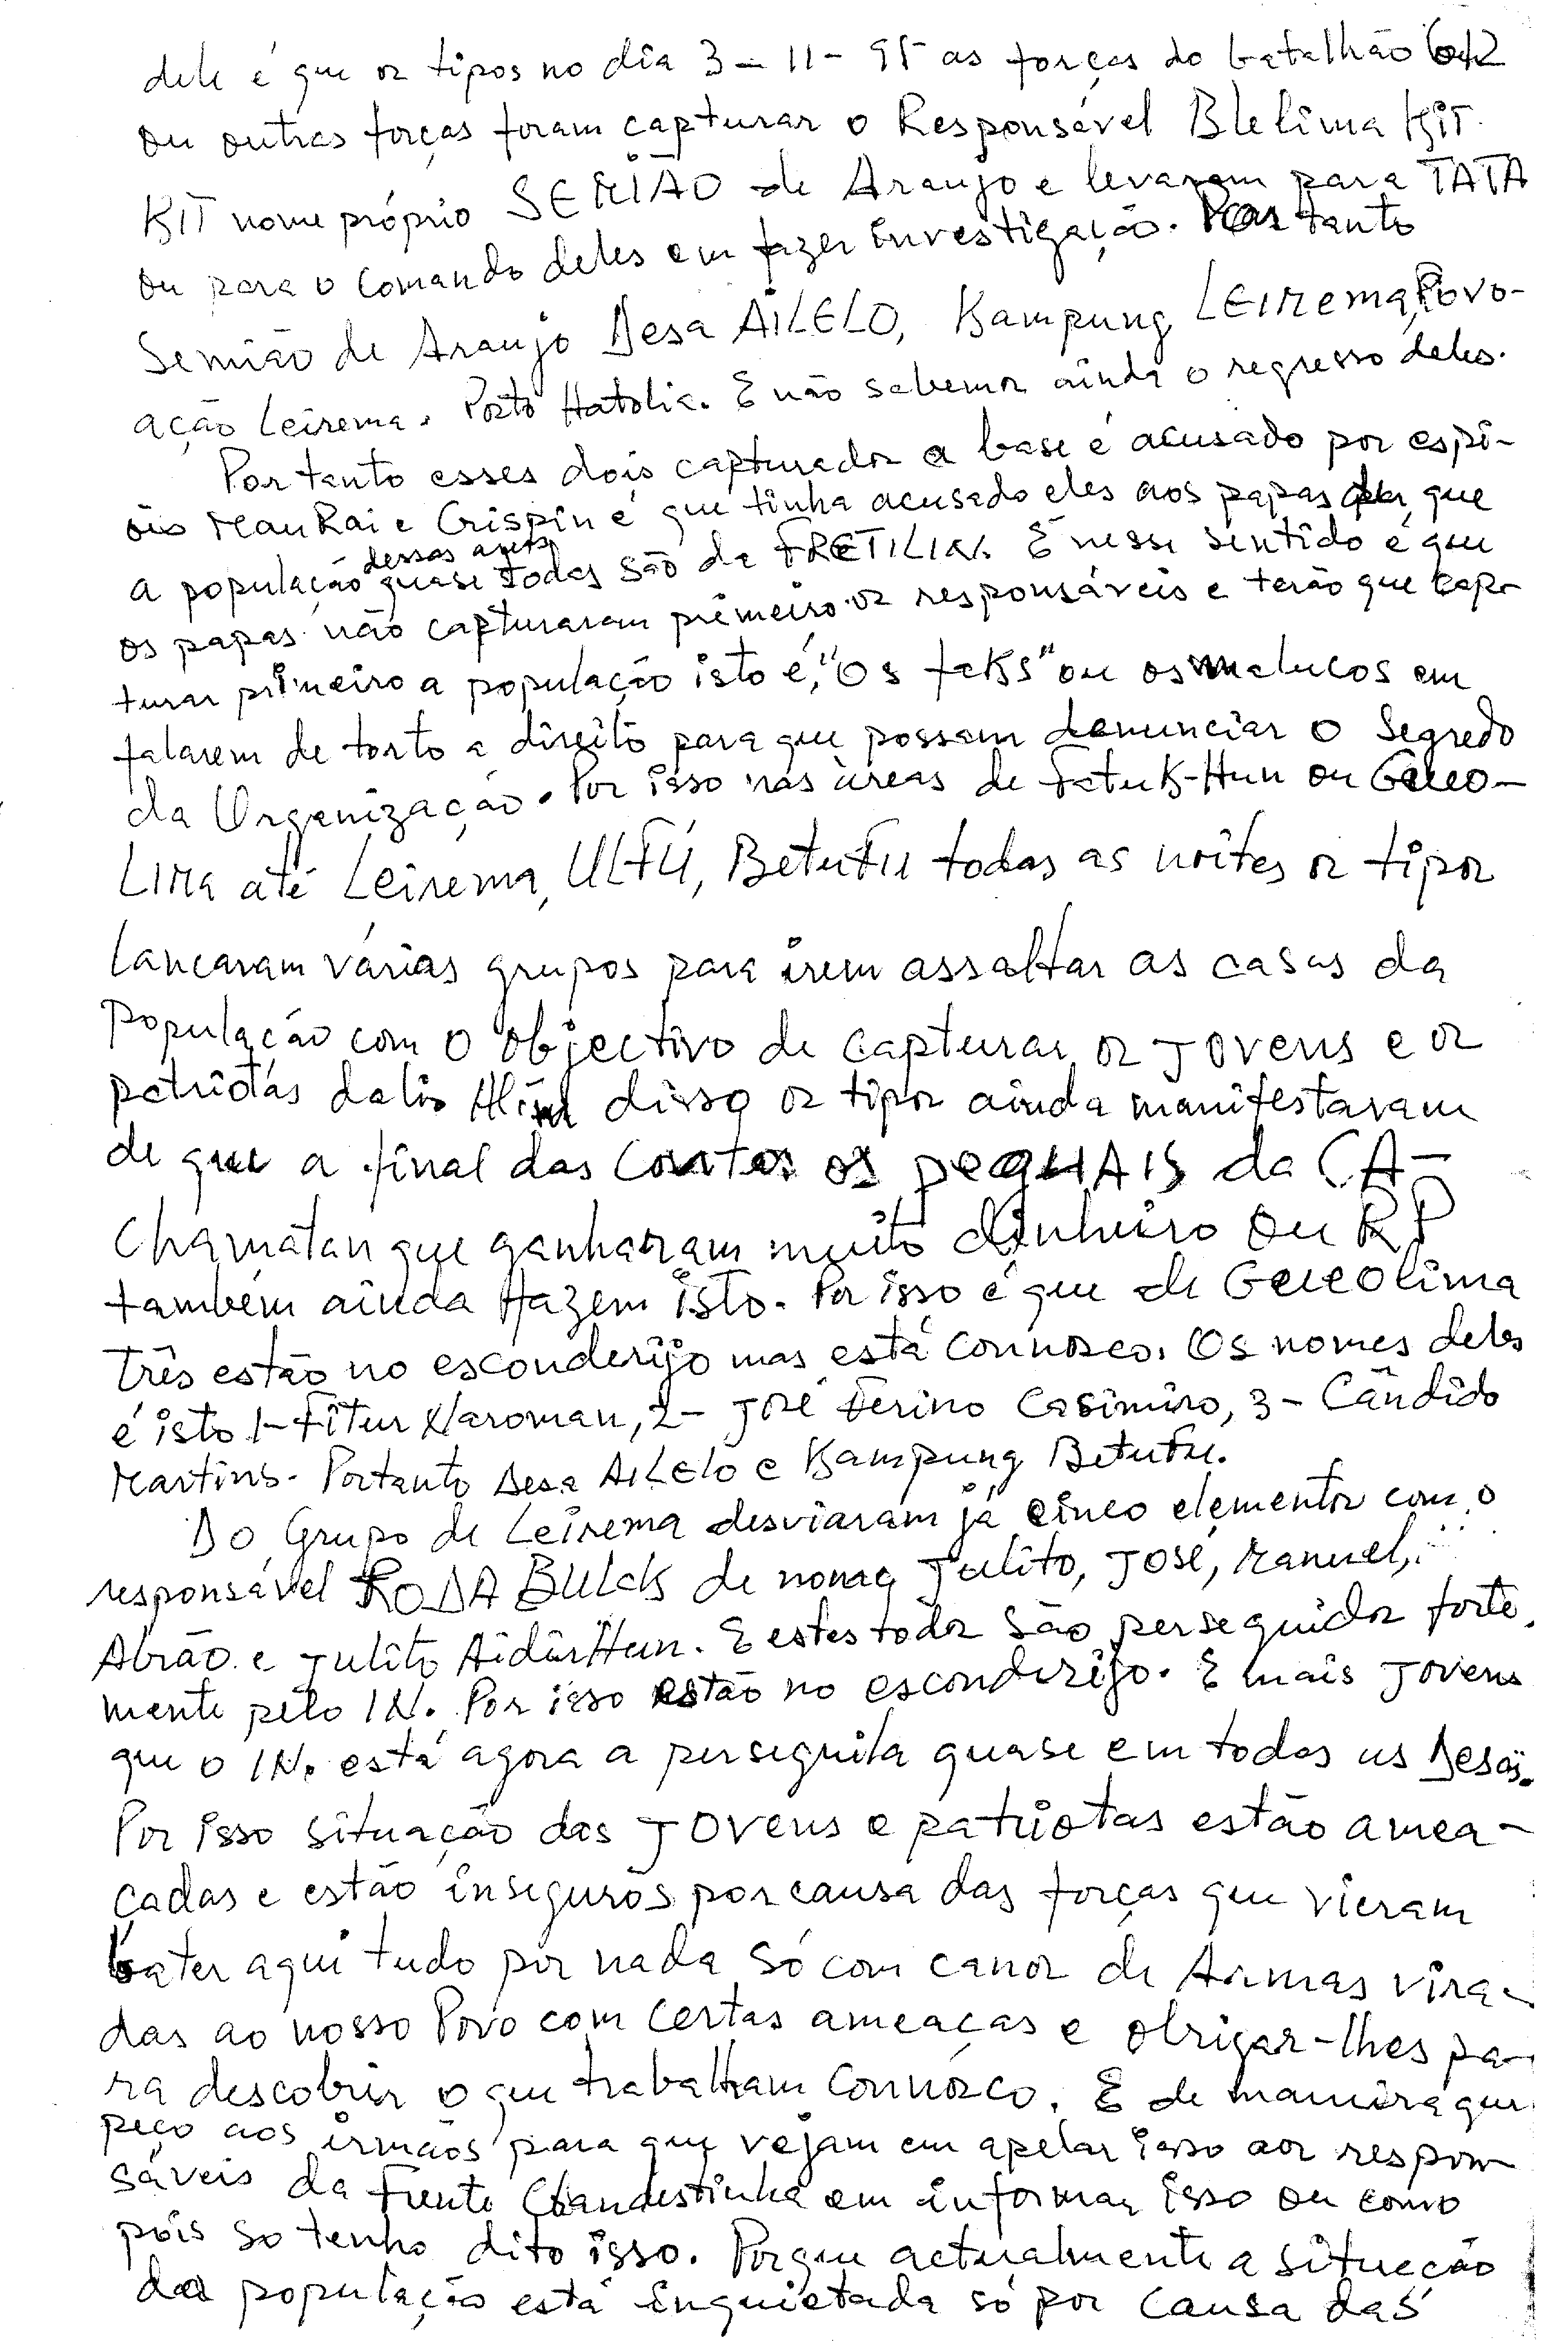 dele é que os tipos no dia 3-11-95 as forças do batalhão 642
ou outras forças foram capturar o Responsável Blelima KIT
KIT nome próprio SEMIÃO de Araujo e levaram para TATA
ou para o comando deles em fazer investigação. Portanto
Semião de Araujo Desa AILELO, Kampung LEIREMA, Povo-
ação Leirema. Posto Hatolia. E não sabemos ainda o regresso deles.
Portanto esses dois capturados a base é acusado por espi-
ões MauRai e Crispin é que tinha acusado eles aos papas que
dessas areas
a população quase todas são da FRETILIN. E nesse sentido é que
os papas não capturaram primeiro os responsáveis e terão que cap-
turar primeiro a população isto é, "os faks" ou os malucos em
falarem de torto a direito para que possam denunciar o Segredo
da Organização. Por isso nas áreas de Fatuk-Hun ou Guico-
Lima até Leirema, ULFÚ, BetuFu todas as noites os tipos
lancaram várias grupos para irem assaltar as casas da
população com o objectivo de capturar os jovens e os
patriotas dalis Além disso os tipos ainda manifestaram
de que a final das Contas os peguAIS da CA-
chamatan que ganharam muito dinheiro ou RP
também ainda fazem isto. Por isso é que de Gueolima
três estão no esconderijo mas está connosco. Os nomes deles
é isto 1- Fitur Naroman, 2- José Ferino Casimiro, 3- Cândido
Martins. Portanto Desa AILELO e Kampung BetuFu.
Do Grupo de Leirema desviaram já cinco elementos com o
responsável RODA BULAK de nome Julito, José, Manuel,
Abrão e Julito AidilaHun. E estes todos são perseguidos forte
mente pelo IN. Por isso estão no esconderijo. E mais jovens
que o IN. está agora a perseguila quase em todas as Desas.
Por isso situação das jovens e patriotas estão amea-
çadas e estão inseguros por causa das forças que vieram
bater aqui tudo por nada só com canos de Armas vira-
das ao nosso Povo com certas ameaças e obrigar-lhes pa-
ra descobrir o que trabalham connosco. E de maneira que
peço aos irmãos para que vejam em apelar isso aos respon-
sáveis da Frente Clandestinha em informar isso ou como
pois so tenho dito isso. Porque actualmente a situação
da população está inquietada só por causa das